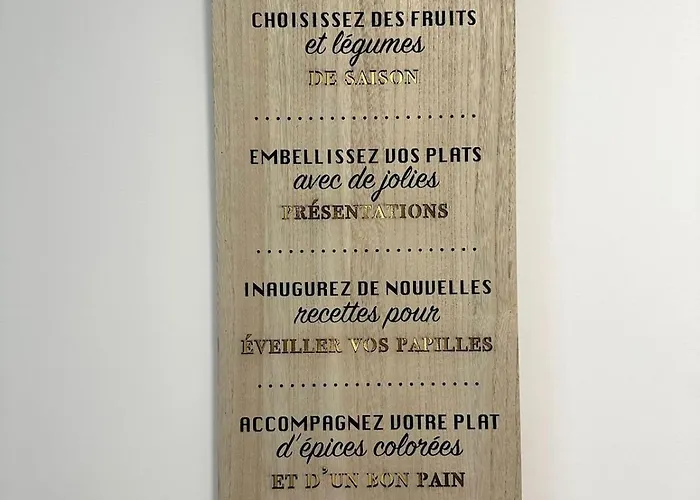 CHOISISSEZ DES FRUITS
et légumes
DE SAISON
EMBELLISSEZ VOS PLATS
avec de jolies
PRÉSENTATIONS
INAUGUREZ DE NOUVELLES
recettes pour
ÉVEILLER VOS PAPILLES
ACCOMPAGNEZ VOTRE PLAT
d'épices colorées
ET D'UN BON PAIN